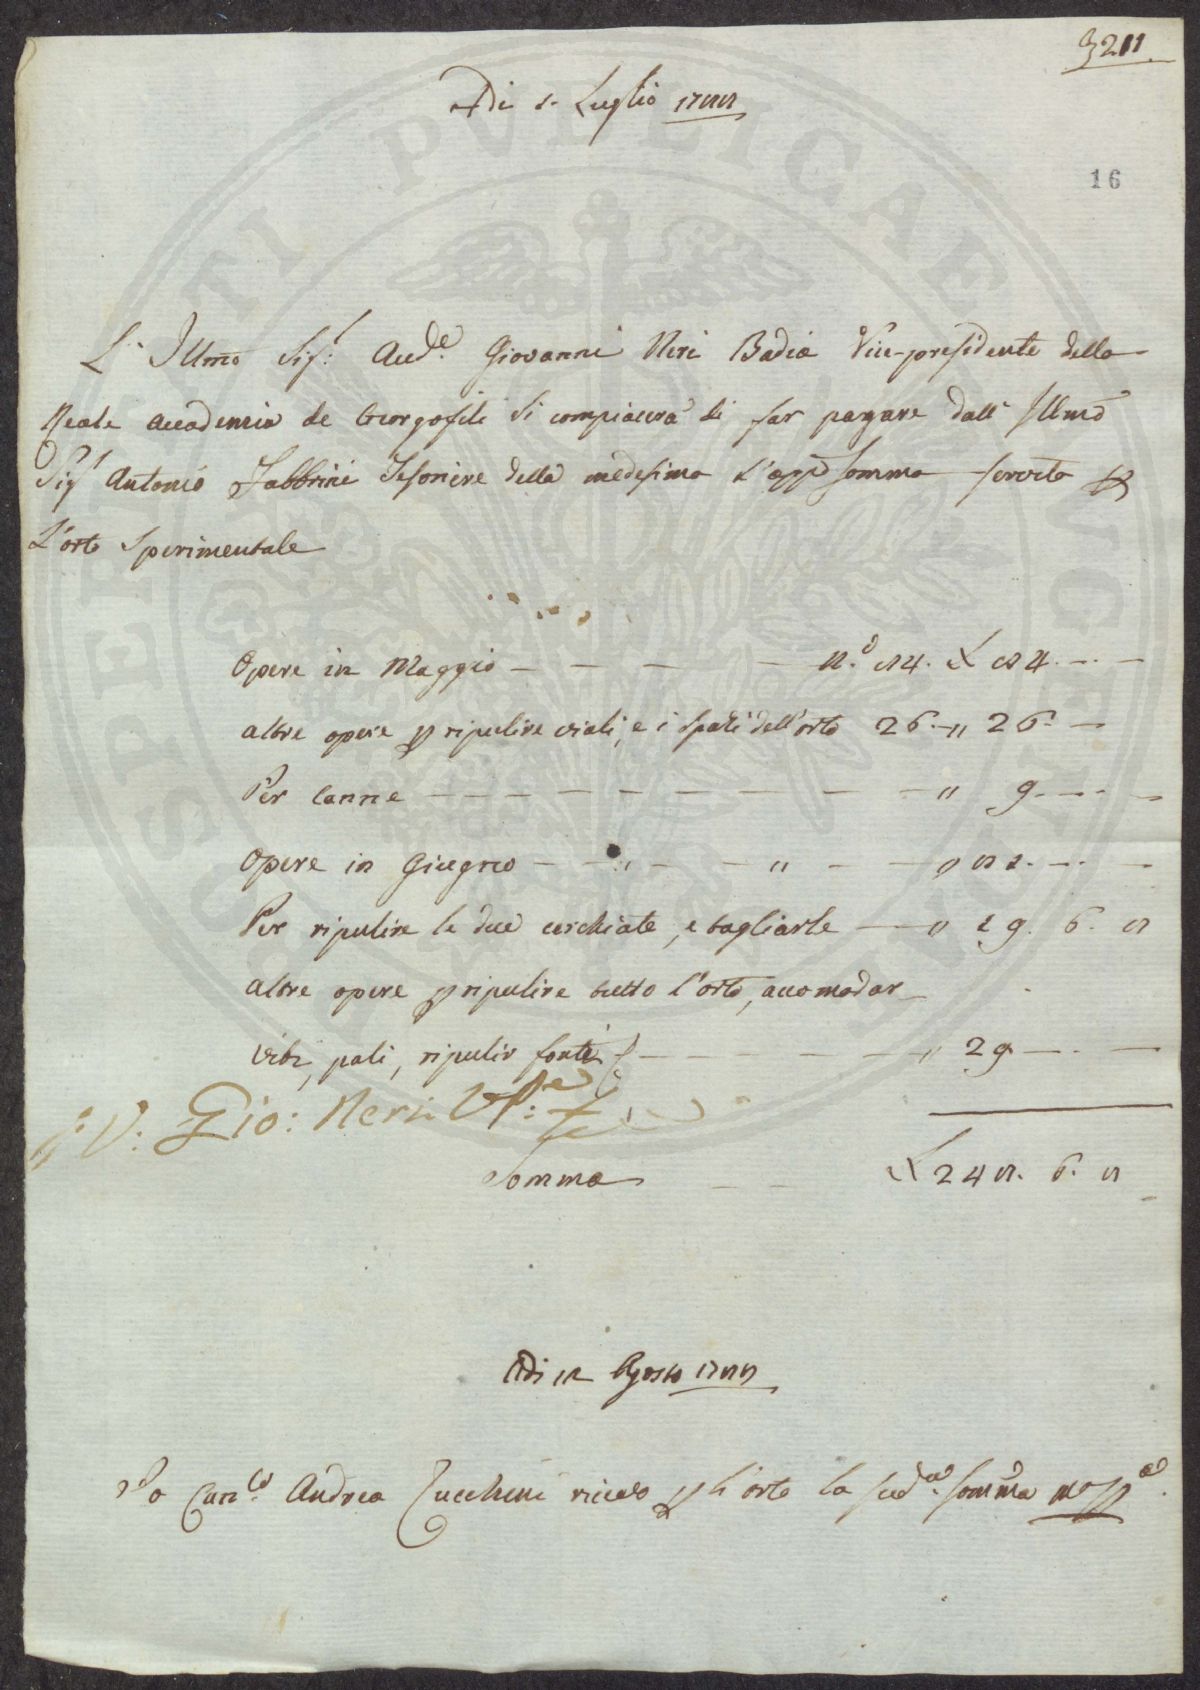 3211
Adi 1. Luglio 1788
16
L' Illmo Sig.r Aud.e Giovanni Neri Badia Vice-presidente della
Reale Accademia de Georgofili si compiacerà di far pagare dall' Illmo
Sig.r Antonio Fabbrini Tesoriere della medesima l'app.a somma servita p
L'orto sperimentale
Opere in Maggio — — — — n.o 84. £ 84. — —
altre opere p ripulire viali, e i spazi dell'orto 26. — " 26. —
Per Canne — — — — — — — — " 9. — —
Opere in Giugno — — " — " — — " 81. — —
Per ripulire le due cerchiate, e tagliarle — " 19. 6. 8
altre opere p ripulire tutto l'orto, accomodar
viti, pali, ripulir fonti — — — — — " 29 — —
V: Gio: Neri VP:e
Somma — — £ 248. 6. 8
Adi 12 Agosto 1788
Io Can.co Andrea Zucchini ricevo p l'orto la sud.a somma mo pp.a